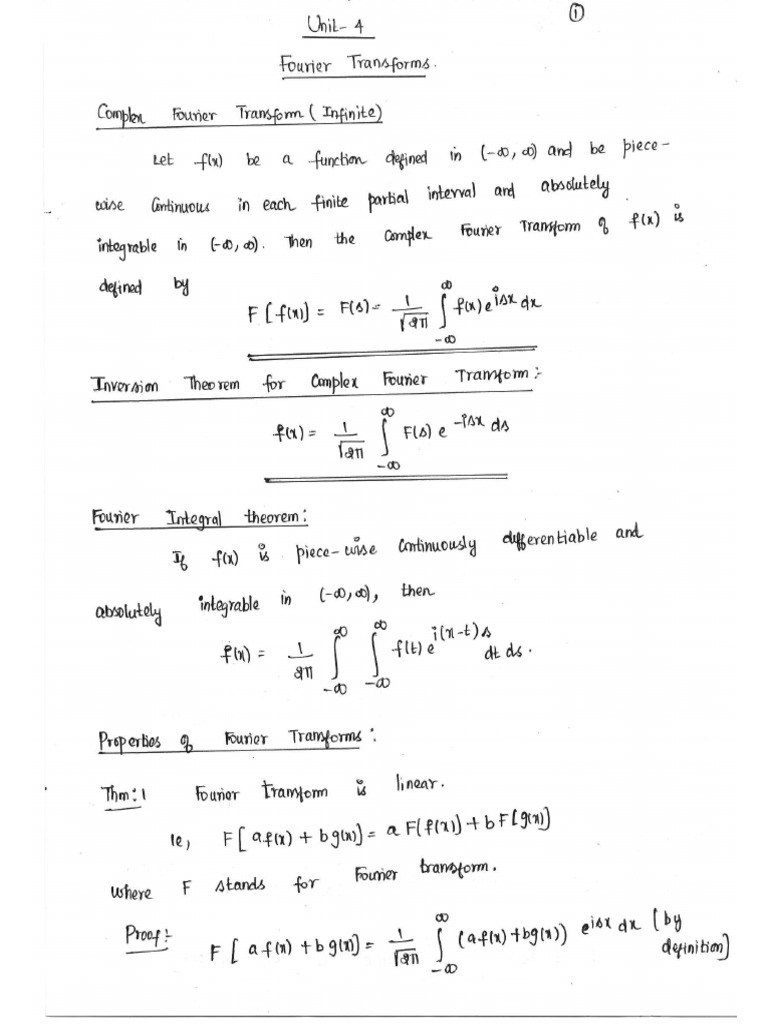 ①
Unit - 4
Fourier Transforms.
Complex Fourier Transform (Infinite)
Let f(x) be a function defined in (-∞, ∞) and be piece-
wise Continuous in each finite partial interval and absolutely
integrable in (-∞, ∞). Then the Complex Fourier Transform of f(x) is
defined by
F[f(x)] = F(s) = 1/√2π ∫_{-∞}^{∞} f(x) e^{isx} dx
Inversion Theorem for Complex Fourier Transform :-
f(x) = 1/√2π ∫_{-∞}^{∞} F(s) e^{-isx} ds
Fourier Integral theorem :
If f(x) is piece-wise Continuously differentiable and
absolutely integrable in (-∞, ∞), then
f(x) = 1/2π ∫_{-∞}^{∞} ∫_{-∞}^{∞} f(t) e^{i(x-t)s} dt ds.
Properties of Fourier Transforms :
Thm : 1 Fourier transform is linear.
ie, F[af(x) + bg(x)] = a F(f(x)] + b F[g(x)]
where F stands for Fourier transform.
Proof :- F[af(x) + bg(x)] = 1/√2π ∫_{-∞}^{∞} (af(x) + bg(x)) e^{isx} dx (by
definition]